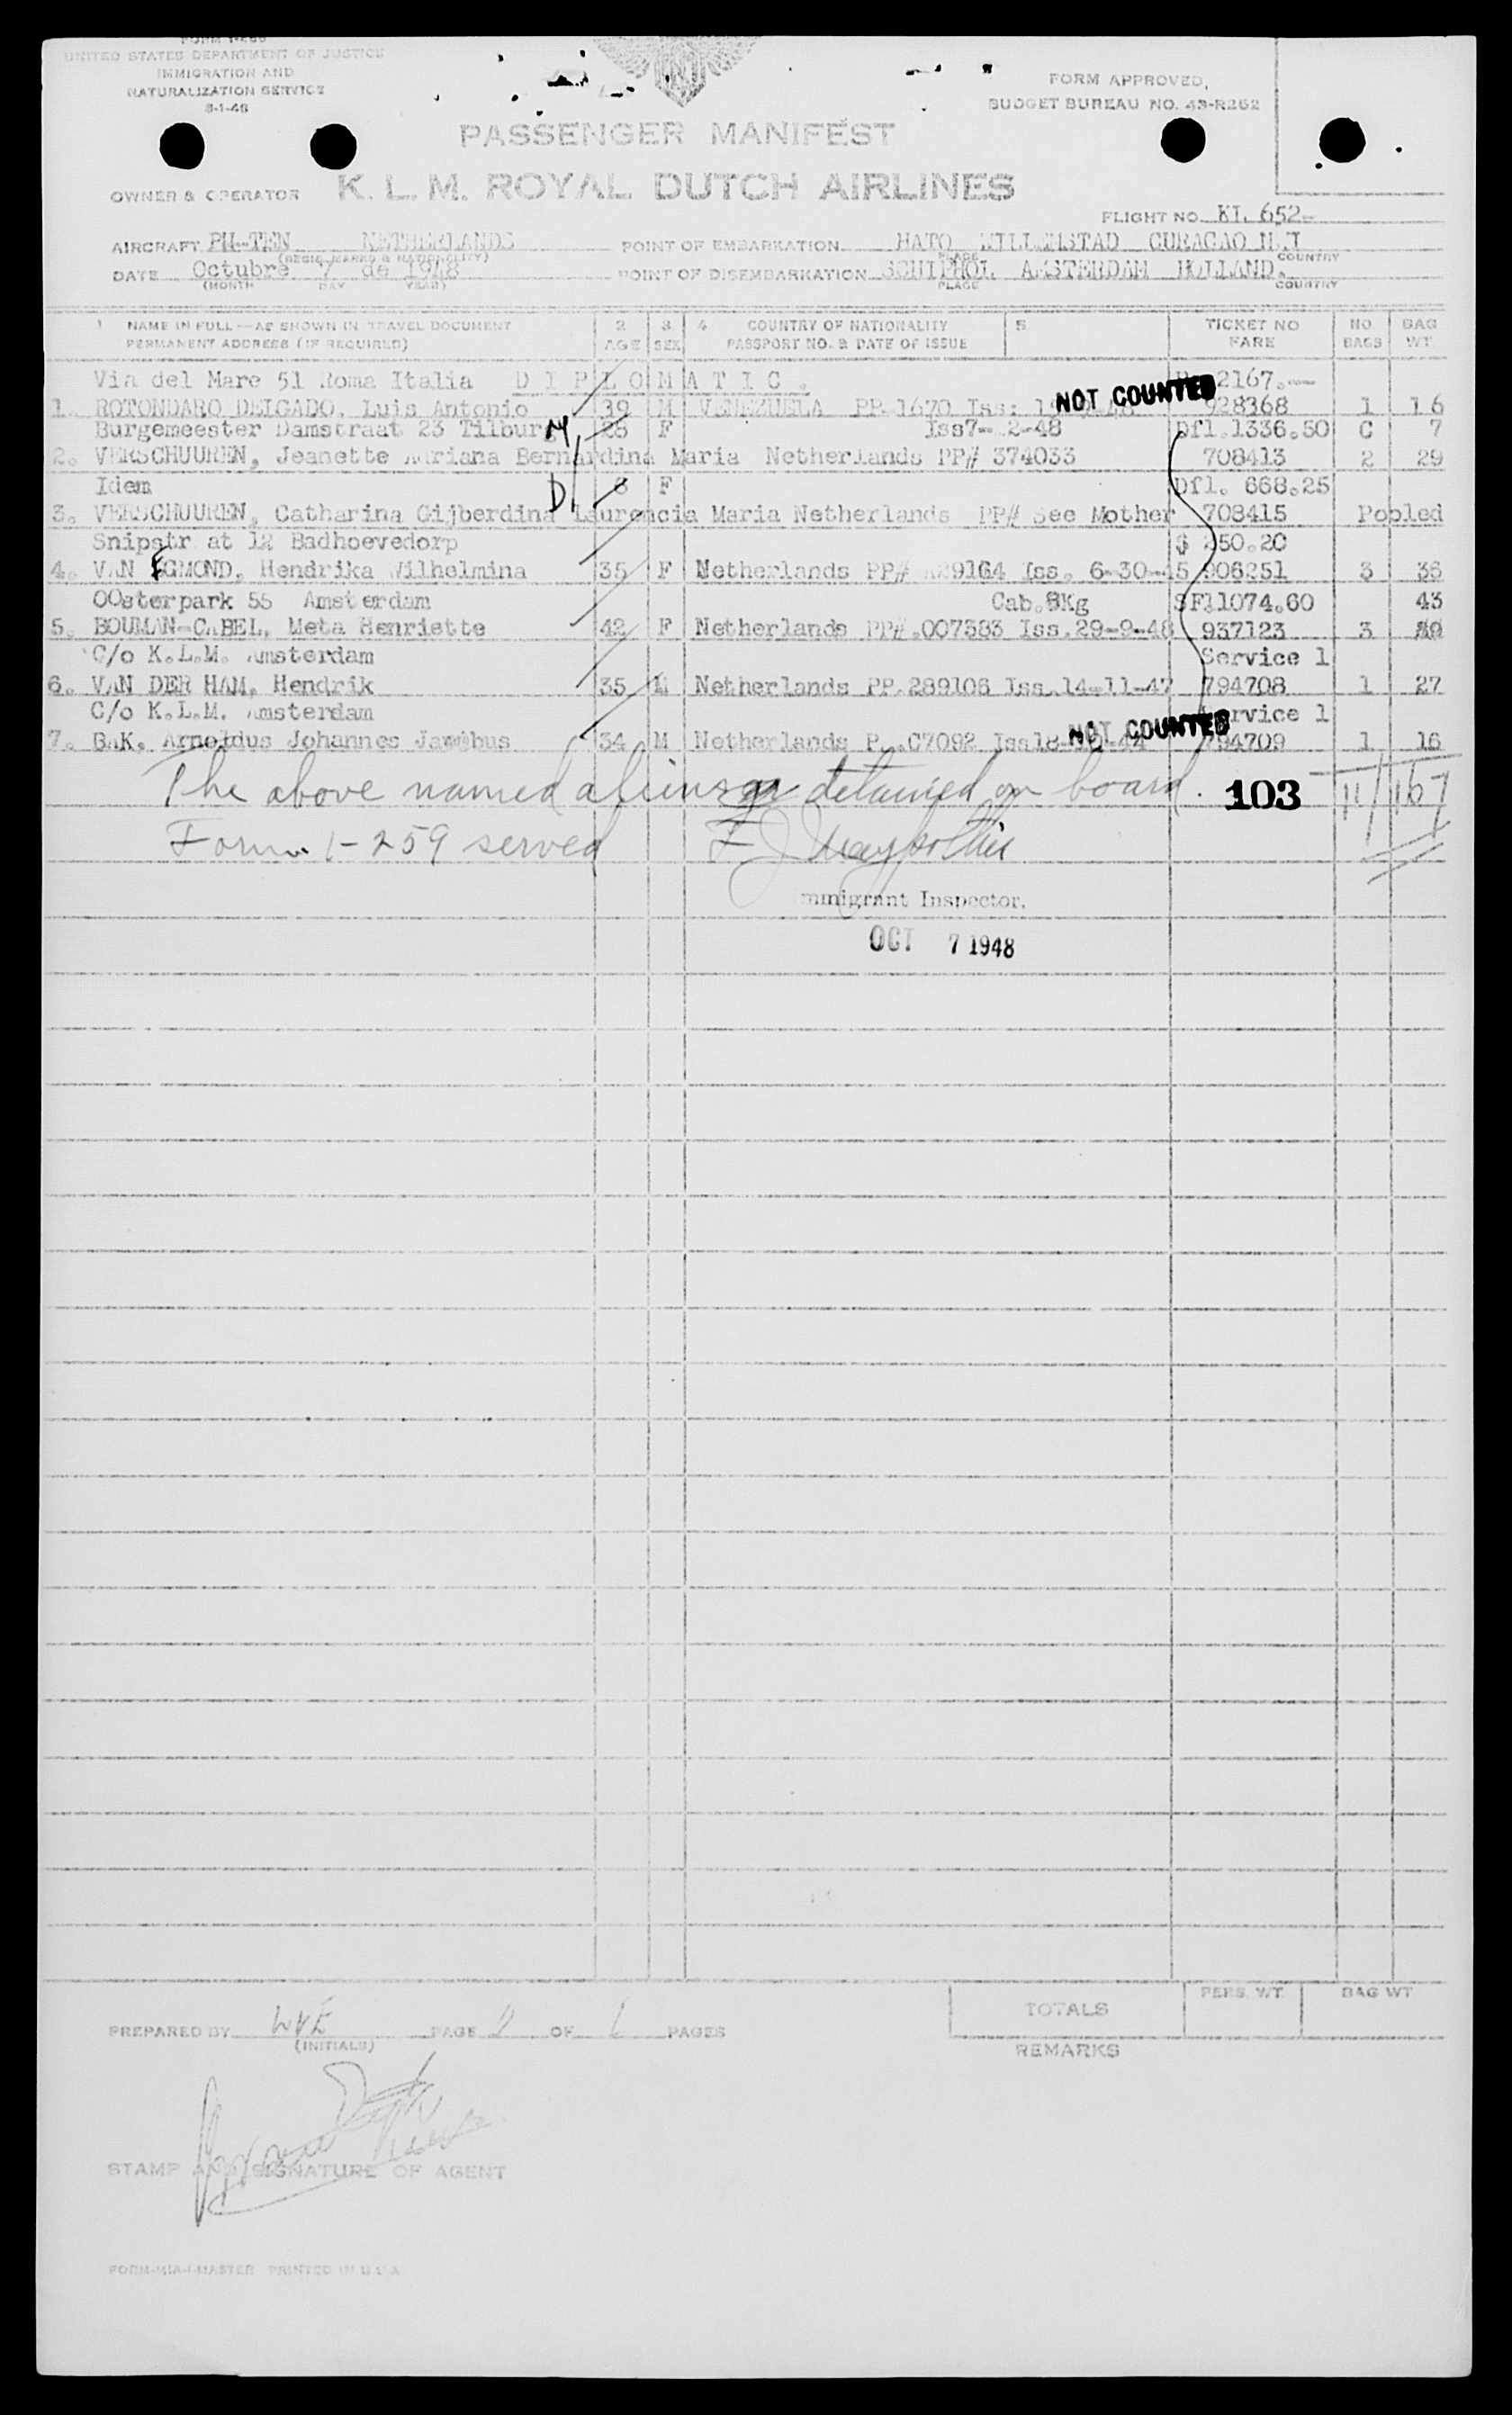 UNITED STATES DEPARTMENT OF JUSTICE
IMMIGRATION AND
NATURALIZATION SERVICE
FORM APPROVED,
BUDGET BUREAU NO. 43-R262
PASSENGER MANIFEST
OWNER & OPERATOR K. L. M. ROYAL DUTCH AIRLINES
FLIGHT NO. KL 652-
AIRCRAFT PH-TEN NETHERLANDS POINT OF EMBARKATION HATO WILLEMSTAD CURACAO N.
(REGIS. MARKS & NATIONALITY) PLACE COUNTRY
DATE Octubre 7 de 1948 POINT OF DISEMBARKATION SCHIPHOL AMSTERDAM HOLLAND.
(MONTH DAY YEAR) PLACE COUNTRY
1 NAME IN FULL—AS SHOWN IN TRAVEL DOCUMENT 2 3 4 COUNTRY OF NATIONALITY 5 TICKET NO NO BAG
PERMANENT ADDRESS (IF REQUIRED) AGE SEX PASSPORT NO. & DATE OF ISSUE FARE BAGS WT.
Via del Mare 51 Roma Italia D I P L O M A T I C . 2167.--
NOT COUNTED
1. ROTONDARO DELGADO, Luis Antonio 39 M VENEZUELA PP 1670 Iss: 928368 1 16
Burgemeester Damstraat 23 Tilburg M 26 F Iss7- 2-48 Dfl.1336.50 C 7
2. VERSCHUUREN, Jeanette Adriana Bernardina Maria Netherlands PP# 374033 708413 2 29
Idem D 6 F Dfl. 668.25
3. VERSCHUUREN, Catharina Gijberdina Laurencia Maria Netherlands PP# See Mother 708415 Pooled
Snipstr at 12 Badhoevedorp $ 250.20
4. VAN EGMOND, Hendrika Wilhelmina 35 F Netherlands PP# Iss. 6-30- 5 906251 3 36
OOsterpark 55 Amsterdam Cab.8Kg SFl1074.60 43
5. BOUMAN-CABEL, Meta Henriette 42 F Netherlands PP#.007383 Iss.29-9-48 937123 3
C/o K.L.M. Amsterdam Service 1
6. VAN DER HAM, Hendrik 35 M Netherlands PP.289106 Iss.14-11-47 794708 1 27
C/o K.L.M. Amsterdam Service 1
NOT COUNTED
7. BAK, Arnoldus Johannes Jacobus 34 M Netherlands P..C7092 794709 1 16
The above named aliens detained on board. 103 11/167
Form I-259 served F J
Immigrant Inspector.
OCT 7 1948
PERS. WT. BAG WT
TOTALS
PREPARED BY PAGE OF PAGES
(INITIALS)
REMARKS
STAMP AND SIGNATURE OF AGENT
FORM-MIA-I-MASTER PRINTED IN U.S.A.